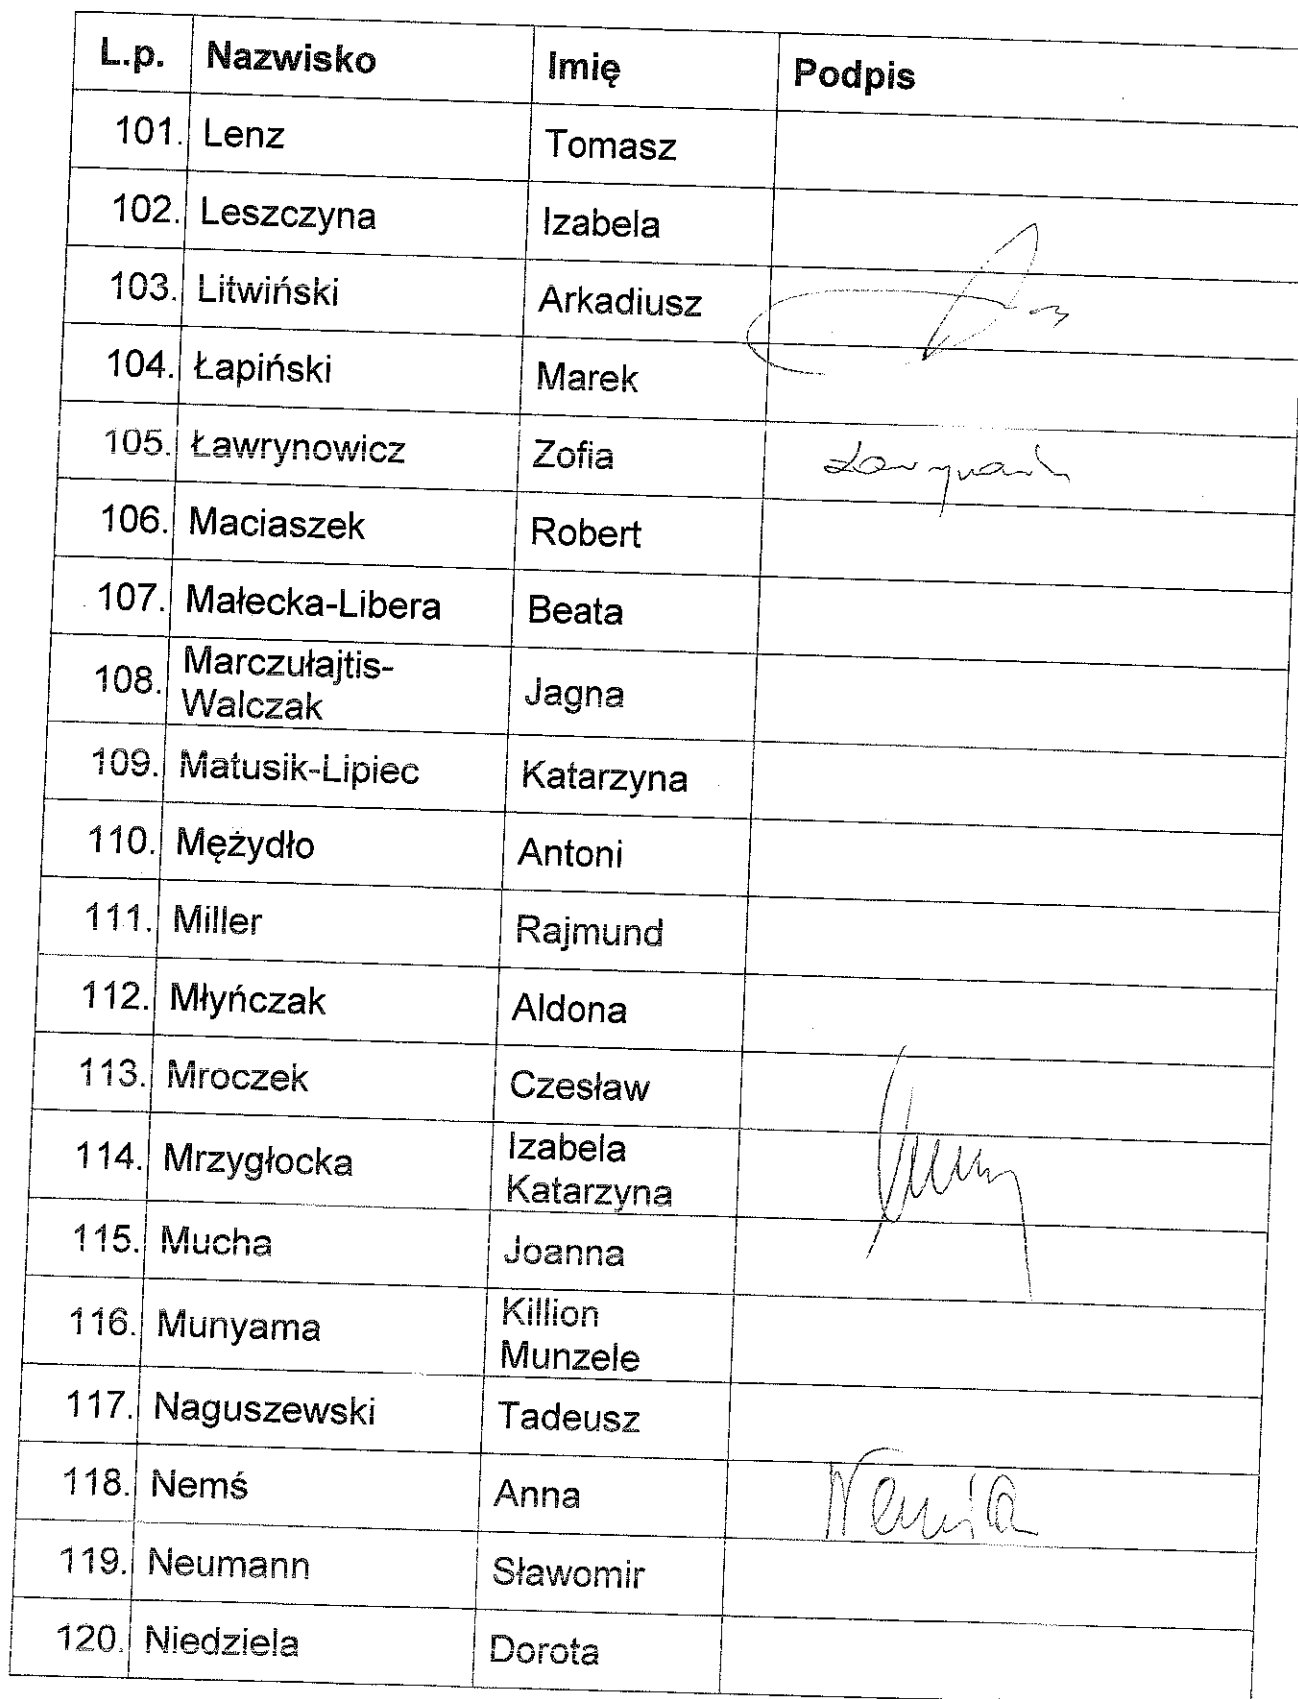 L.p. Nazwisko Imię Podpis
101. Lenz Tomasz
102. Leszczyna Izabela
103. Litwiński Arkadiusz
104. Łapiński Marek
105. Ławrynowicz Zofia
106. Maciaszek Robert
107. Małecka-Libera Beata
108. Marczułajtis-
Walczak Jagna
109. Matusik-Lipiec Katarzyna
110. Mężydło Antoni
111. Miller Rajmund
112. Młyńczak Aldona
113. Mroczek Czesław
114. Mrzygłocka Izabela
Katarzyna
115. Mucha Joanna
116. Munyama Killion
Munzele
117. Naguszewski Tadeusz
118. Nemś Anna
119. Neumann Sławomir
120. Niedziela Dorota